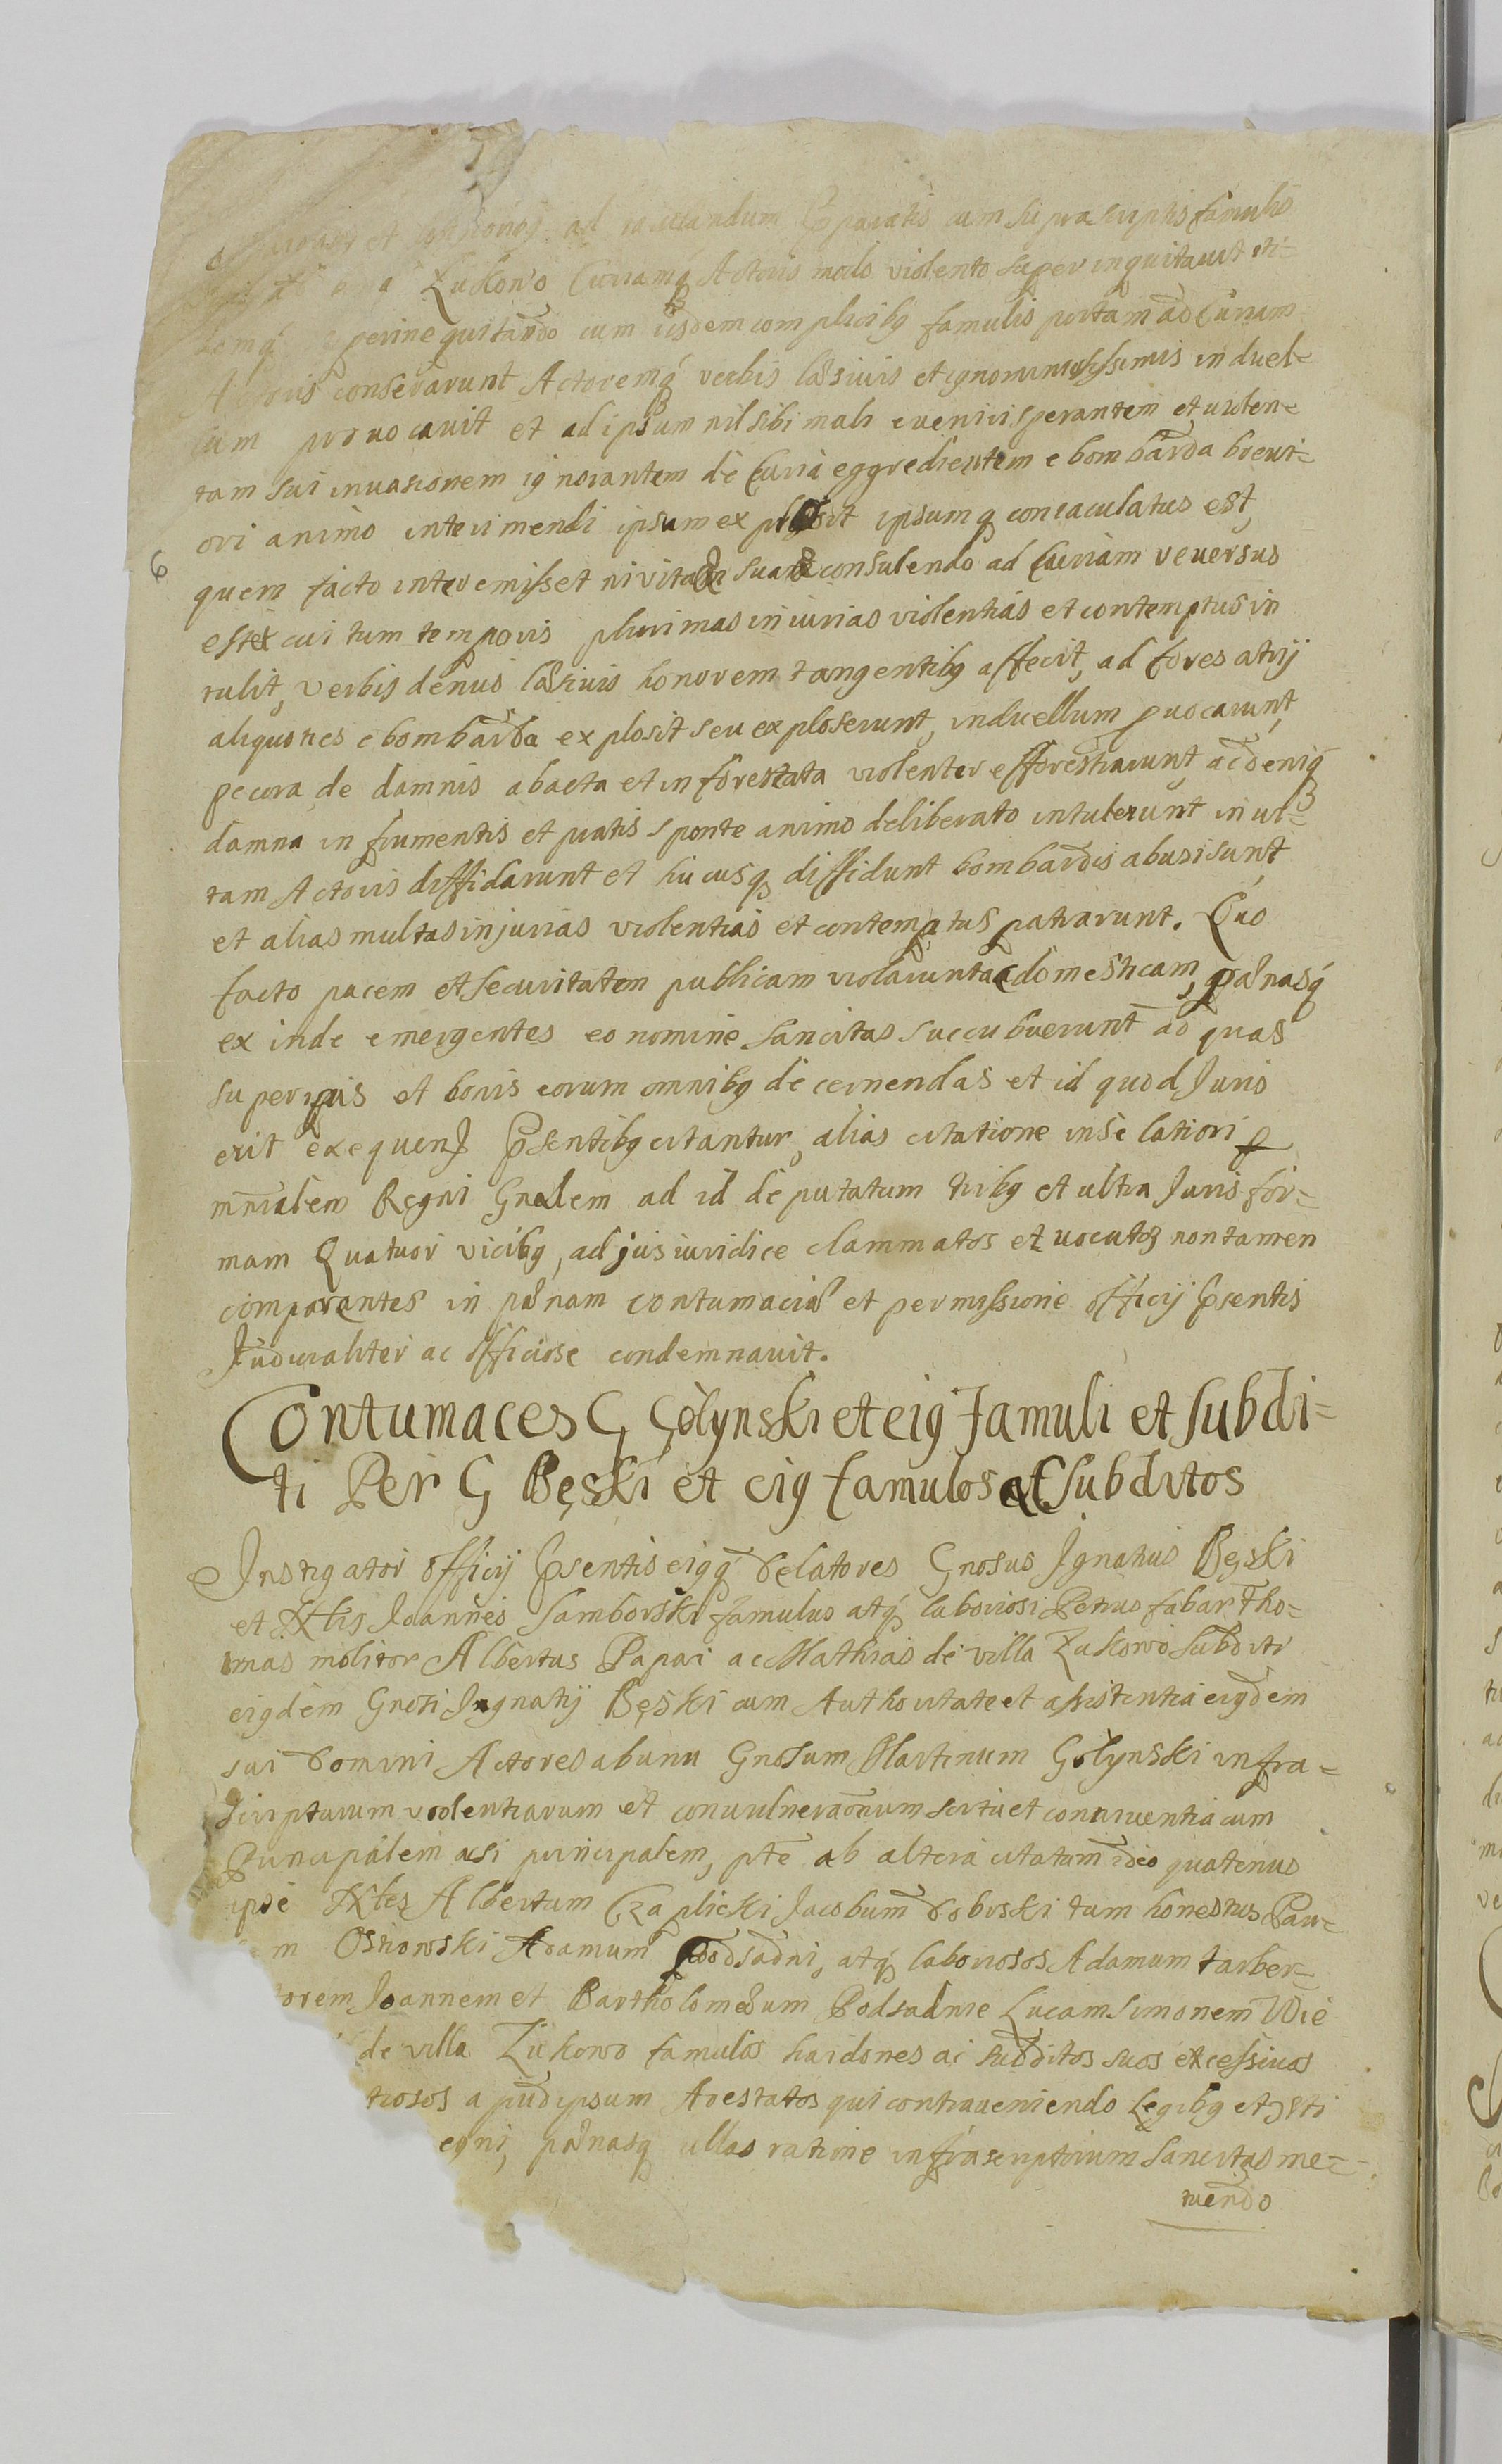 et ad iaculandum paratis cum supra scriptis famulis
Zukowo Curiamq Actoris modo violento super inquitavit iti-
demq perinequitando cum iisdem complicibq famulis portam ad Curiam
Actoris conserarunt Actoremq verbis lascivis et ignominiosissimis in duel-
lum provocavit et ad ipsum nil sibi mali eveniri sperantem et violen-
tam sui invasionem ignorantem de Curia eggredientem e bombarda brevi-
ori animo interimendi ipsum explosit ipsumq coniaculatus est,
6
quem facto interemisset ni vitam suam consulendo ad Curiam reversus
est cui tum temporis plurimas iniurias violentias et contemptus in
tulit, verbis denuo lascivis honorem tangentibq affecit, ad fores atrij
aliquoties e bombarda explosit seu exploserunt, induellum pvocarunt,
pecora de damnis abacta et inforestata violenter efforestrarunt, ac deniq
damna in frumentis et pratis sponte animo deliberato intulerunt in vi-
tam Actoris diffidarunt et hucusq diffidunt bombardis abusi sunt,
et alias multas injurias violentias et contemptus patrarunt. Quo
facto pacem et securitatem publicam violarunt ac domesticam, pænasq
ex inde emergentes eo nomine sancitas succubuerunt ad quas
super ipsis et bonis eorum omnibq decernendas et id quod Juris
erit exequen psentibq citantur, alias citatione in se latiori p
mnialem Regni Gnalem ad id deputatum tribq et ultra Juris for-
mam Quatuor vicibq, ad jus iuridice clammatos et vocatos non tamen
comparantes in pænam contumaciæ et permissione officij psentis
Judicialiter ac officiose condemnavit.
Contumaces G Golynski et eiq famuli et subdi-
ti Per G Bęski et eiq famulos et subditos
Instigator officij psentis eiqq delatores Gnosus Ignatius Bęski
et Nblis Joannes Samborski famulus atq laboriosi Petrus faber Tho-
mas molitor Albertus Papai ac Mathias de villa Zukowo subditi
eiqdem Gnosi Ignatij Bęski cum Authoritate et assistentia eiqdem
sui domini Actores ab una Gnosum Martinum Golynski infra-
scripturum violentiarum et convulneraonum scitu et conniventia cum
Principalem uti principalem, pte ab altera citatum ideo quatenus
ipse Nbles Albertum Czaplicki Jacobum dobrski tum honestus Pau-
m Ostrowski Adamum Podsadni, atq laboriosos Adamum farber-
torem Joannem et Bartholomæum Podsadnie Lucam Simonem Wie
de villa Zukowo famulos haidones ac subditos suos excessivos
tiosos apud ipsum Arestatos qui contraveniendo Legibq et
egni, pænasq ullas ratione infrascriptorum sancitas me-
tuendo